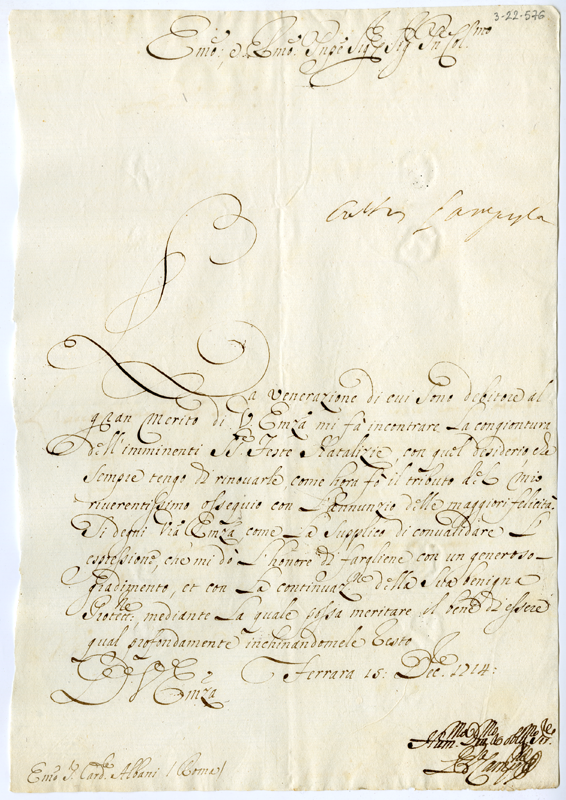 3-22-576
Emo: e Rmo: Sigr Sig Col.mo
La venerazione di cui sono debitore al
gran merito di V. Emza mi fà incontrare la congiontura
dell'imminenti SS. Feste Natalizie, con quel desiderio, che
sempre tengo di rinovarle come hora fò il tributo del mio
riverentissimo ossequio con l'annunzio delle maggiori felicità.
Si degni V'ra Emza, come la supplico di convalidare l'
espressione, che mi dò l'honore di fargliene con un generoso
gradimento, et con la continuaz.ne della sua benigna
Protez.ne mediante la quale possa meritare il bene di essere
qual profondamente inchinandomele resto
D. V. Emza
Ferrara 15: Dec.e 1714:
Hum.mo Div.mo obblig.mo Ser.
Emo S. Card. Albani / Roma /